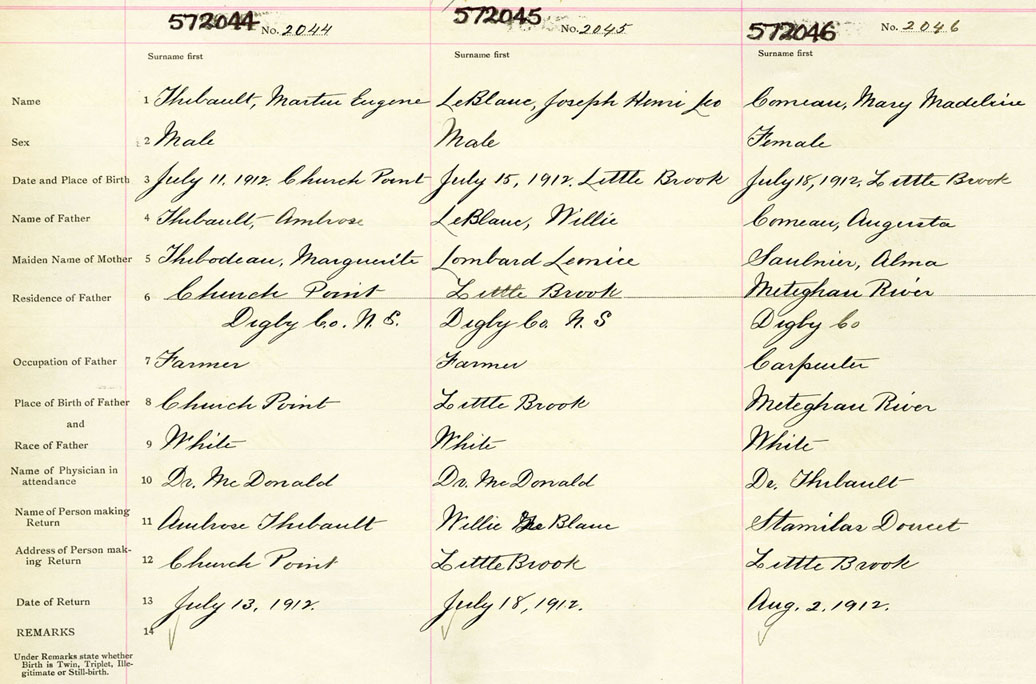 572044 No. 2044 572045 No. 2045 572046 No. 2046
Surname first Surname first Surname first
Name 1 Thibault, Martin Eugene LeBlanc, Joseph Henri Leo Comeau, Mary Madeline
Sex 2 Male Male Female
Date and Place of Birth 3 July 11, 1912. Church Point July 15, 1912. Little Brook July 18, 1912. Little Brook
Name of Father 4 Thibault, Ambrose LeBlanc, Willie Comeau, Augusta
Maiden Name of Mother 5 Thibodeau, Marguerite Lombard Leonice Saulnier, Alma
Residence of Father 6 Church Point Little Brook Meteghan River
Digby Co. N. S. Digby Co. N. S Digby Co
Occupation of Father 7 Farmer Farmer Carpenter
Place of Birth of Father 8 Church Point Little Brook Meteghan River
and
Race of Father 9 White White White
Name of Physician in
attendance 10 Dr. McDonald Dr. McDonald Dr. Thibault
Name of Person making
Return 11 Ambrose Thibault Willie Le Blanc Stanilas Doucet
Address of Person mak-
ing Return 12 Church Point Little Brook Little Brook
Date of Return 13 July 13, 1912. July 18, 1912. Aug. 2. 1912.
REMARKS 14
Under Remarks state whether
Birth is Twin, Triplet, Ille-
gitimate or Still-birth.